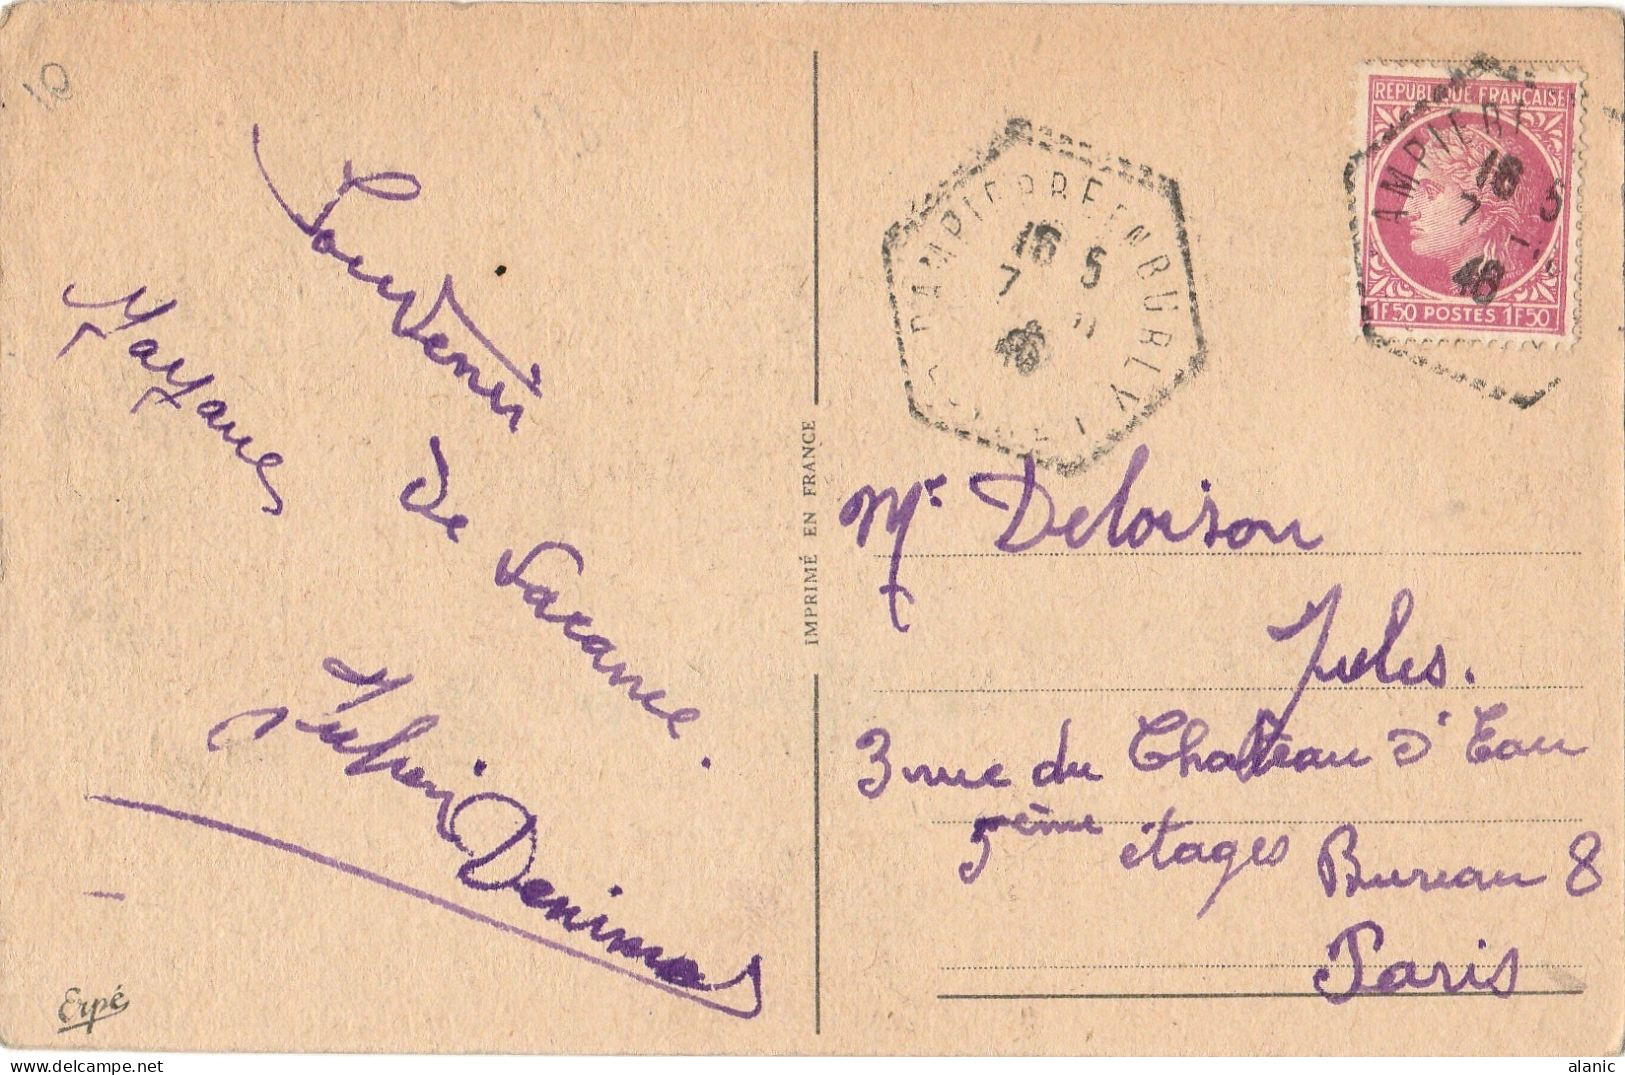 10
Souvenir
de Vacance.
Mayanes
Julien Denimas
Erpé
IMPRIMÉ EN FRANCE
DAMPIERRE EN BURLY
16 5
7
46
REPUBLIQUE FRANÇAISE
AMPIERRE
16 5
7
46
1F50 POSTES 1F50
Mr Deloison
Jules.
3 rue du Chateau d'Eau
5ème étages Bureau 8
Paris
alanic